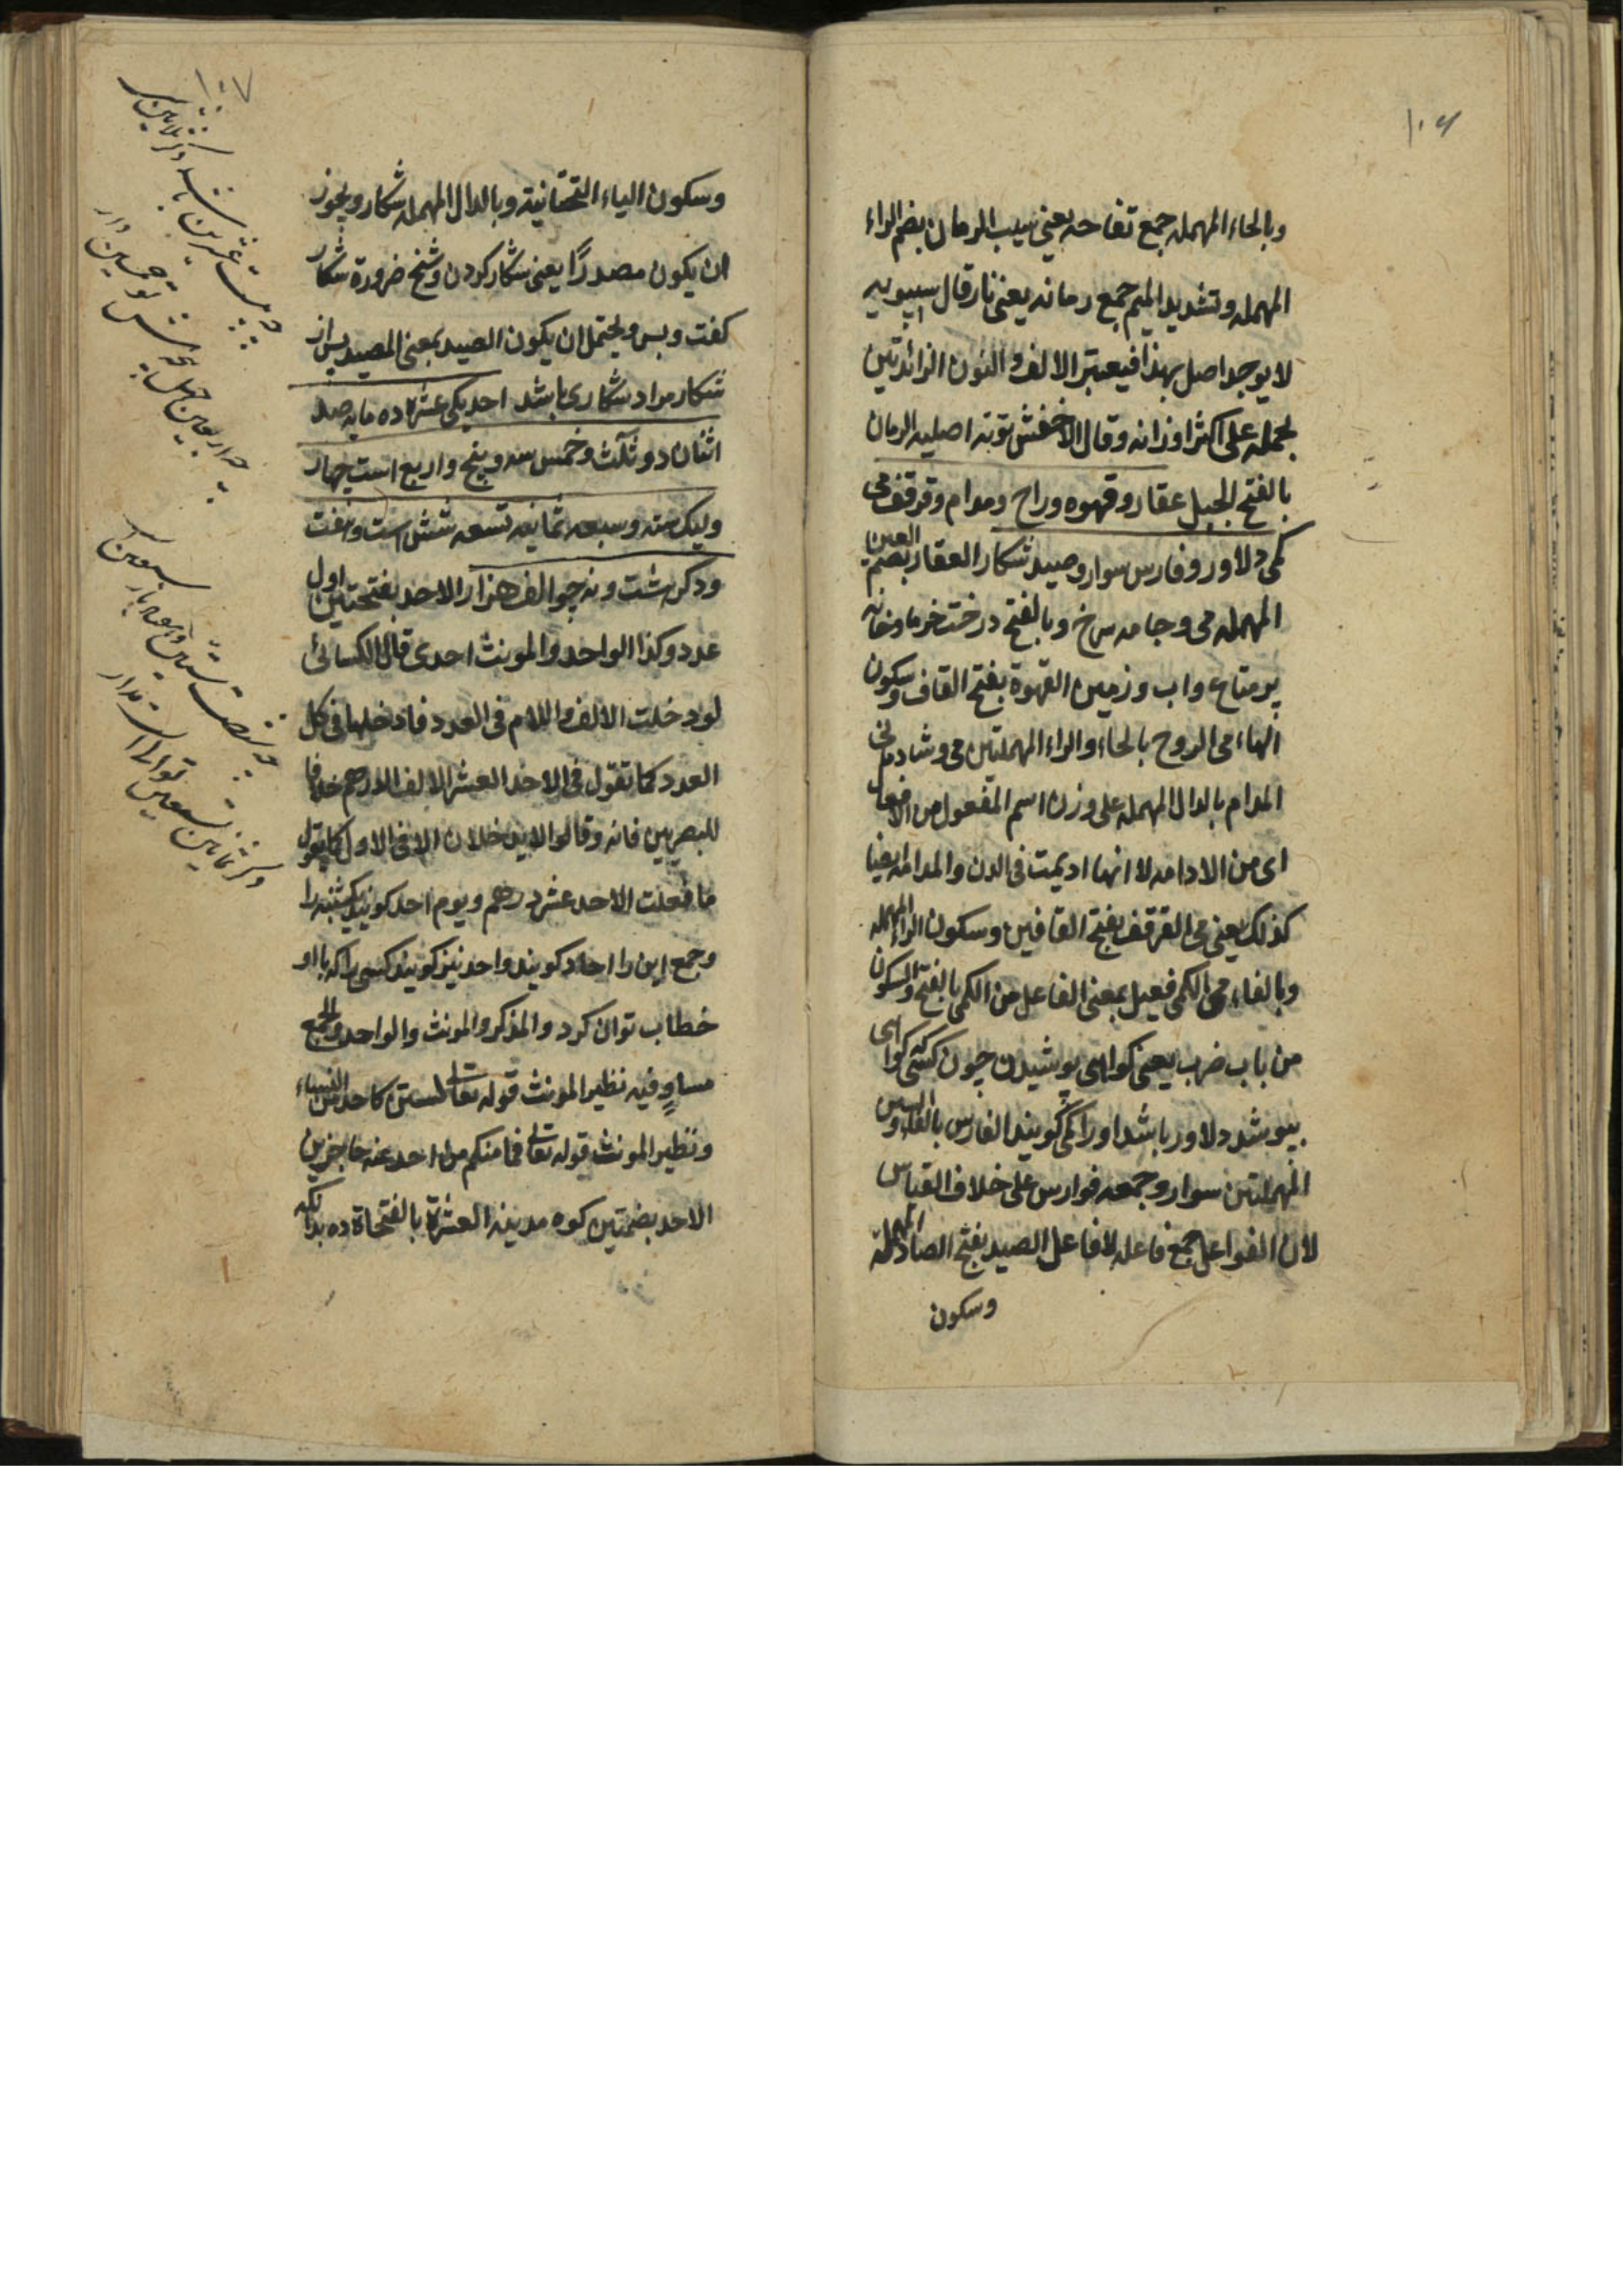 ١٠٦
وبالحاء المهمله جمع تفاحه يعنى سيب الرمان بضم الراء
المهمله وتشديد الميم جمع رمانه يعنى نار قال سيبويه
لا يوجد اصل بهذا فيعتبر الالف والنون الزائدتين
بحمله على اكثر اوزانه وقال الاخفش نونه اصليه الرمان
بالفتح الجبل عقار و قهوه وراح ومدام وقرقف مى
كمى دلاور وفارس سوار وصيد شكار العقار بضم العين
المهمله مى وجامه سرخ وبالفتح درخت خرما وخانه
پر متاع واب وزمين القهوة بفتح القاف وسكون
الهاء مى الروح بالحاء والراء المهملتين مى وشادمانى
المدام بالدال المهمله على وزن اسم المفعول من الافعال
اى من الادامه لا انها اديمت فى الدن والمدامه ايضا
كذلك يعنى مى القرقف بفتح القافين وسكون الراء المهمله
وبالفاء مى الكمى فعيل بمعنى الفاعل من الكمى بالفتح والسكون
من باب ضرب يعنى كواهى پوشيدن چون كسى كواهى
بپوشد دلاور باشد اورا كمى كويند الفارس بالفاء والسين
المهملتين سوار وجمعه فوارس على خلاف القياس
لان الفواعل جمع فاعله لا فاعل الصيد بفتح الصاد المهمله
وسكون
١٠٧
وسكون الياء التحتانية وبالدال المهمله شكار ويجوز
ان يكون مصدرًا يعنى شكار كردن وشيخ ضرورة شكار
كفت وبس ويحتمل ان يكون الصيد بمعنى المصيد پس از
شكار مراد شكارى باشد احد يكى عشره ده مايه صد
اثنان دو ثلث وخمس سه و پنج واربع است چهار
وليك سته وسبعه ثمانيه تسعه شش است وهفت
ودكر هشت ونه چو الف هزار الاحد بفتحتين اول
عدد وكذا الواحد والمونث احدى قال الكسائى
لو دخلت الالف واللام فى العدد فادخلها فى كل
العدد كما تقول فى الاحد العشر الالف الدرهم خلافا
للبصريين فانه وقالوا لا يدخلان الا فى الاول كما يقول
ما فعلت الاحد عشر درهم ويوم احد كويند يكشنبه را
وجمع اين را احاد كويند واحد نيز كويند كسى را كه با او
خطاب توان كرد والمذكر والمونث والواحد والجمع
مساوٍ فيه نظير المونث قوله تعالى لستن كاحد من النساء
ونظير المونث قوله تعالى فما منكم من احد عنه حاجزين
الاحد بضمتين كوه مدينه العشرة بالفتحاة ده بدانكه
دو بيست عشرين باشد دكر ثلاثين سى
چهار اربعين چهل پنجاهش تو خمسين دار
دو شصت ستين
دكر ثمانين تسعين نود